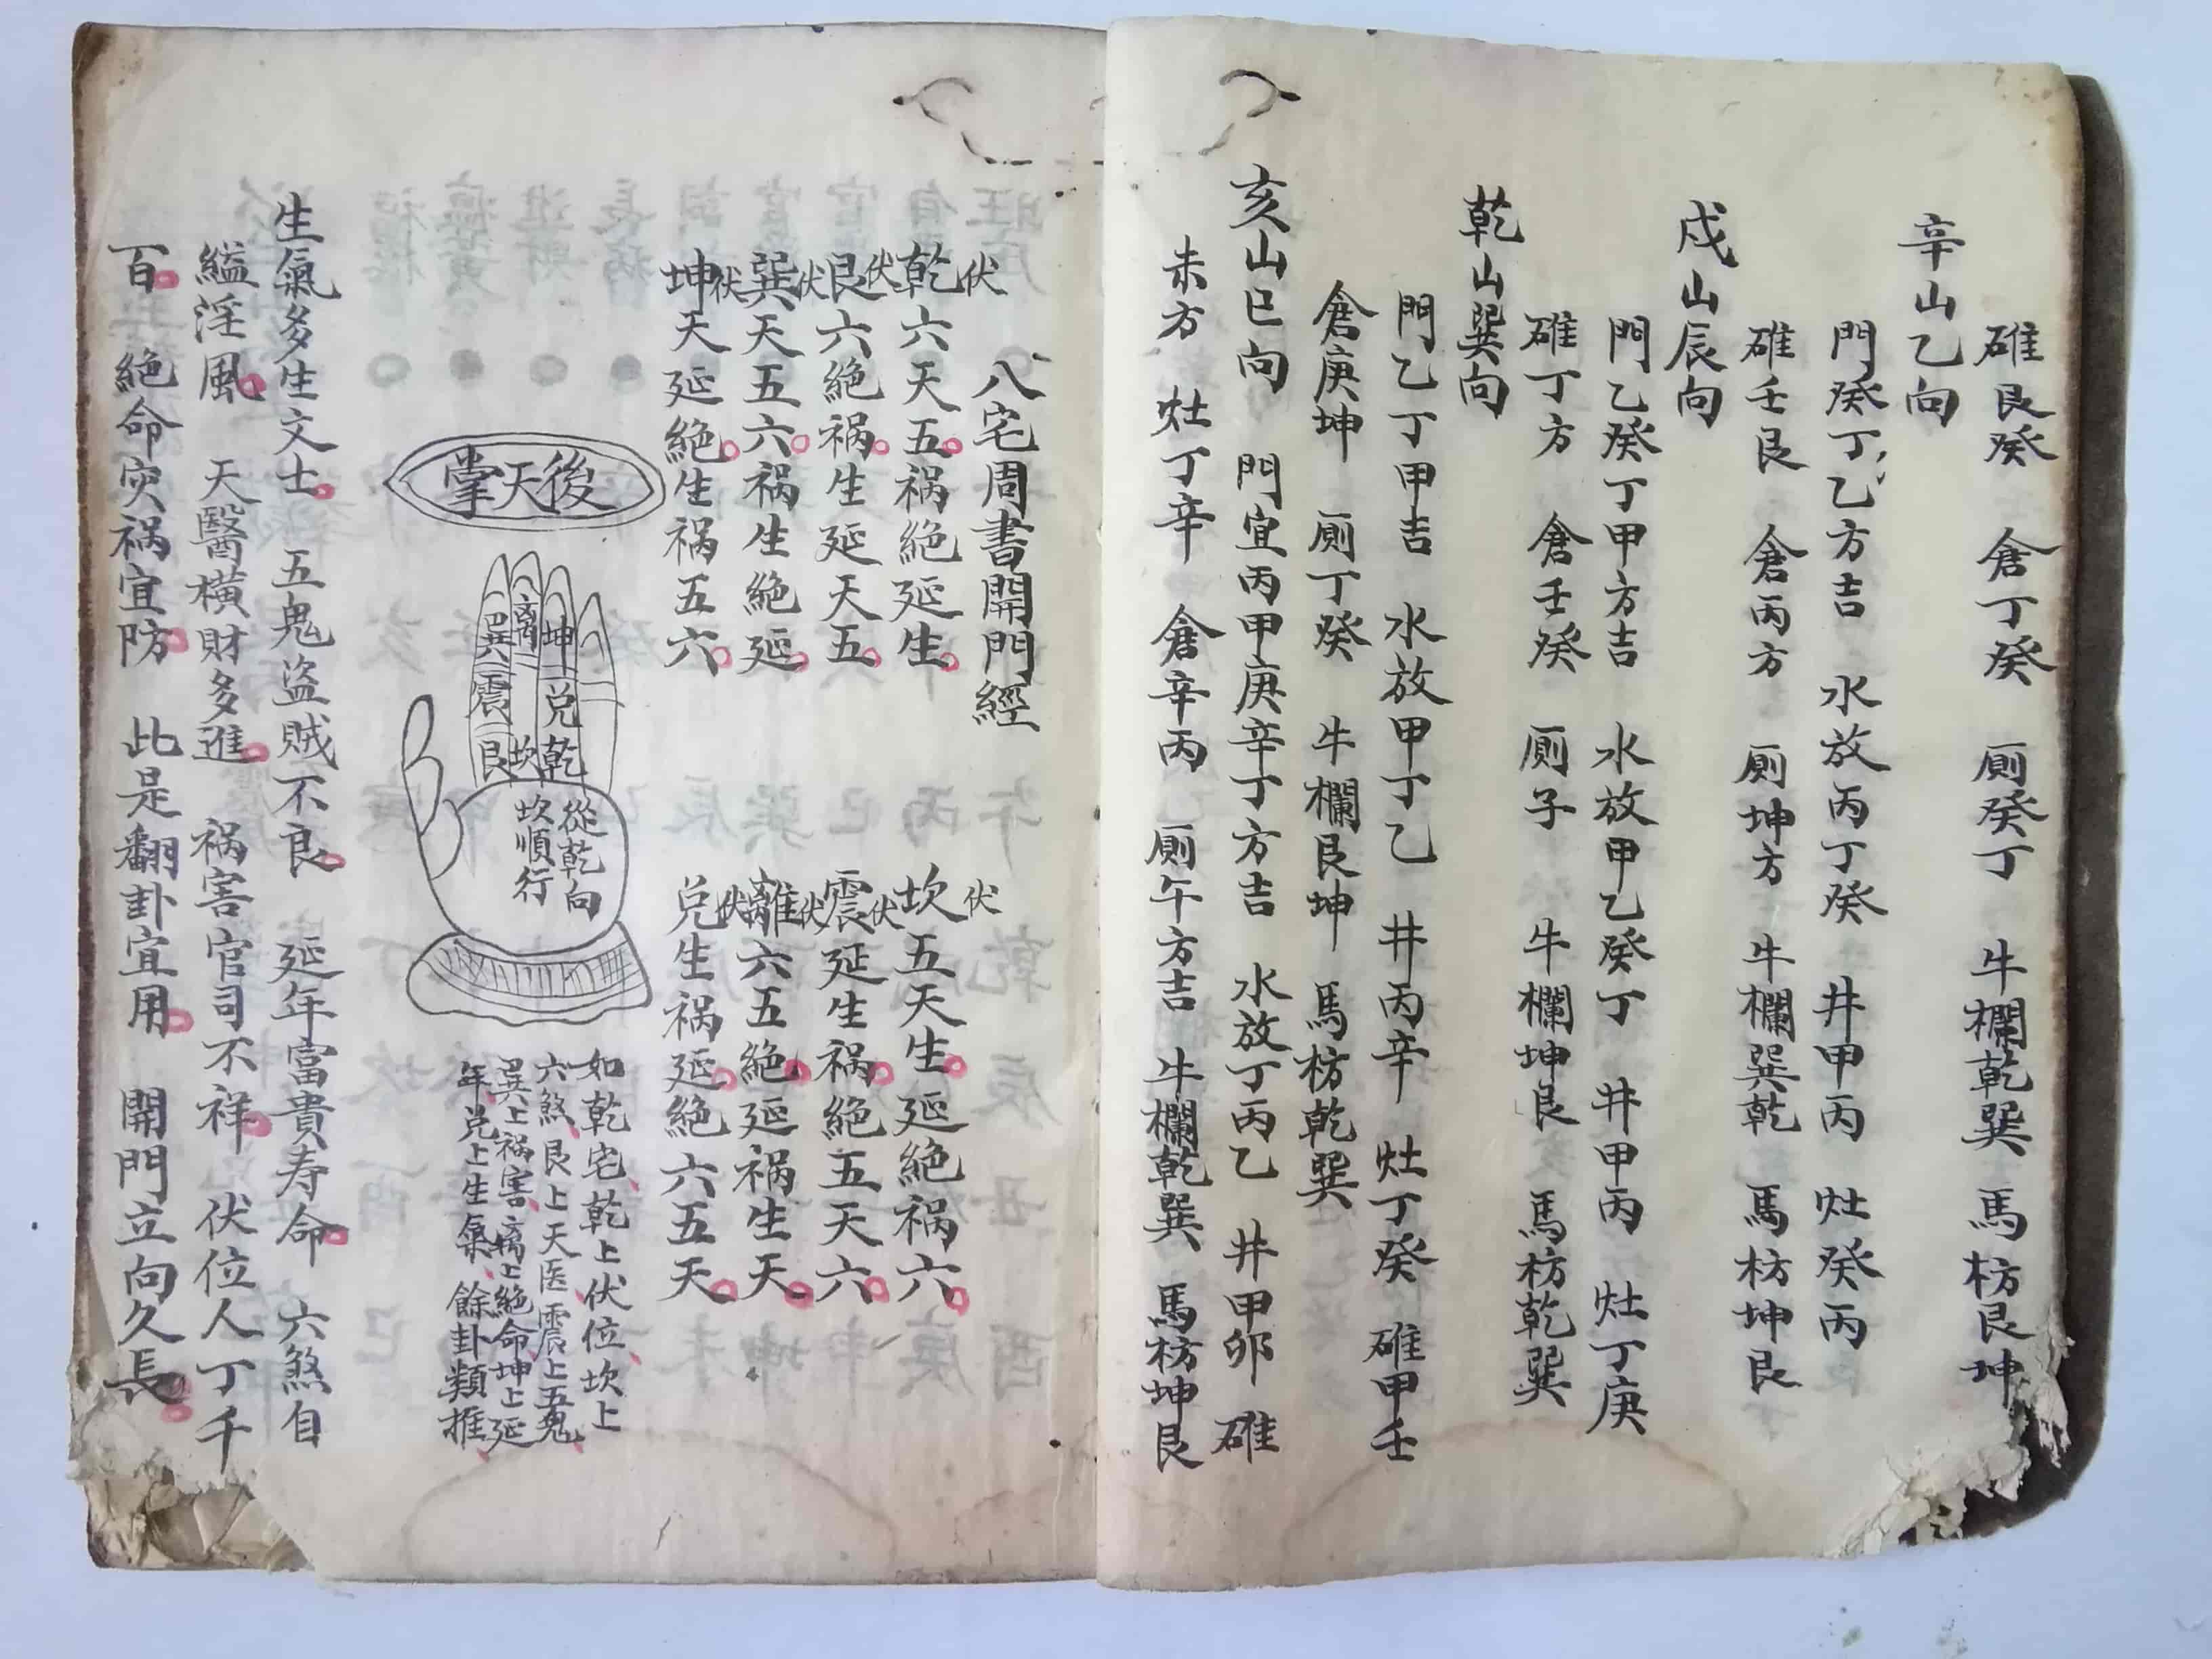 碓艮癸　倉丁癸　厠癸丁　牛欄乾巽　馬枋艮坤
辛山乙向
門癸丁乙方吉　水放丙丁癸　井甲丙　灶癸丙
碓壬艮　倉丙方　厠坤方　牛欄巽乾　馬枋坤艮
戍山辰向
門乙癸丁甲方吉　水放甲乙癸丁　井甲丙　灶丁庚
碓丁方　倉壬癸　厠子　牛欄坤艮　馬枋乾巽
乾山巽向
門乙丁甲吉　水放甲丁乙　井丙辛　灶丁癸　碓甲壬
倉庚坤　厠丁癸　牛欄艮坤　馬枋乾巽
亥山巳向　門宜丙甲庚辛丁方吉　水放丁丙乙　井甲卯　碓
未方　灶丁辛　倉辛丙　厠午方吉　牛欄乾巽　馬枋坤艮
八宅周書開門經
伏
乾六天五禍絕延生
伏
坎五天生延絕禍六
伏
艮六絕禍生延天五
伏
震延生禍絕五天六
伏
巽天五六禍生絕延
伏
離六五絕延禍生天
伏
坤天延絕生禍五六
伏
兌生禍延絕六五天
後天掌
坤
離
巽
兌
震
乾
坎
艮
從乾向
坎順行
如乾宅乾上伏位坎上
六煞艮上天医震上五鬼
巽上禍害离上絕命坤上延
年兌上生氣餘卦類推
生氣多生文士　五鬼盜賊不良　延年富貴寿命　六煞自
縊淫風　天醫橫財多進　禍害官司不祥　伏位人丁千
百　絕命灾禍宜防　此是翻卦宜用　開門立向久長